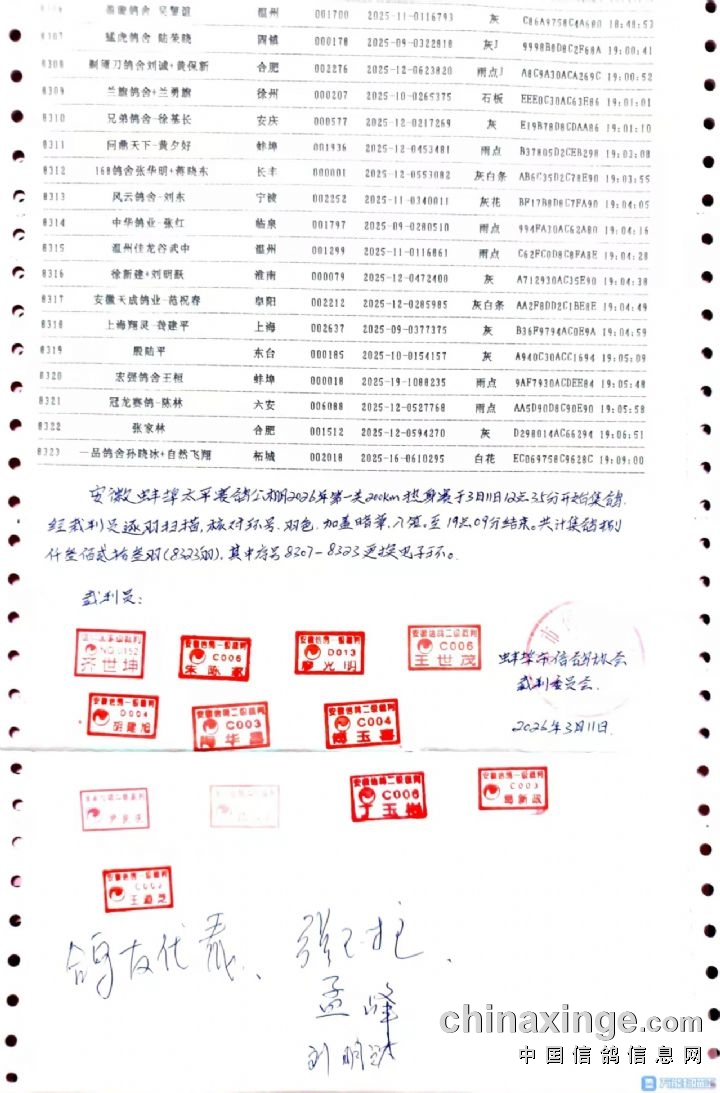 温州 001700 2025-11-0116793 灰 C86A9758C4A680 18:48:53
8307 猛虎鸽舍-陆荣晓 固镇 000178 2025-09-0322818 灰J 9998B8D8C2F68A 19:00:41
8308 剃须刀鸽舍刘诚+黄保新 合肥 002276 2025-12-0623820 雨点J A8C9A30ACA269C 19:00:52
8309 兰旗鸽舍+兰勇旗 徐州 000207 2025-10-0265375 石板 EEE0C30AC63E86 19:01:01
8310 兄弟鸽舍-徐基长 安庆 000577 2025-12-0217269 灰 E19B78D8CDAA86 19:01:10
8311 问鼎天下-黄夕好 蚌埠 001936 2025-12-0453481 雨点 B37805D2CEB298 19:03:08
8312 168鸽舍张华明+蒋晓东 长丰 000001 2025-12-0553082 灰白条 AB6C35D2C78E90 19:03:55
8313 风云鸽舍-刘东 宁波 002252 2025-11-0340011 灰花 BF17B8D8C7FA90 19:04:05
8314 中华鸽业-张红 临泉 001797 2025-09-0280510 雨点 994FA30AC62A80 19:04:16
8315 温州佳龙谷武中 温州 001299 2025-11-0116861 雨点 C62FC0D8C8FA8E 19:04:28
8316 徐新建+刘明跃 淮南 000079 2025-12-0472400 灰 A712930AC35E90 19:04:38
8317 安徽天成鸽业-范祝春 阜阳 002212 2025-12-0285985 灰白条 AA2F8DD2C1BE8E 19:04:49
8318 上海翔灵-龚建平 上海 002637 2025-09-0377375 灰 B36F9794AC0E9A 19:04:59
8319 殷陆平 东台 000185 2025-10-0154157 灰 A940C30ACC1694 19:05:09
8320 宏强鸽舍王桓 蚌埠 000018 2025-19-1088235 雨点 9AF7930ACDEE84 19:05:48
8321 冠龙赛鸽-陈林 六安 006088 2025-12-0527768 雨点 AA5D90D8C90E90 19:05:58
8322 张家林 合肥 001512 2025-12-0594270 灰 D298014AC66294 19:06:51
8323 一品鸽舍孙晓冰+自然飞翔 柘城 002018 2025-16-0610295 白花 EC069758C9628C 19:09:00
安徽蚌埠太平赛鸽公棚2026年第一关200km热身赛于3月11日12点35分开始集鸽.
经裁判员逐羽扫描,核对环号、羽色.加盖暗章,入笼.至19点09分结束。共计集鸽捌
仟叁佰贰拾叁羽(8323羽),其中序号8307-8323更换电子环。
裁判员:
NO.0152
齐世坤
安徽信鸽一级裁判
C006
安徽信鸽一级裁判
D013
廖光明
安徽信鸽二级裁判
C006
王世茂
蚌埠市信鸽协会
裁判委员会.
2026年3月11日.
安徽信鸽一级裁判
D004
胡建旭
安徽信鸽二级裁判
C003
陶华昌
安徽信鸽二级裁判
C004
傅玉喜
安徽信鸽二级裁判
C006
丁玉彬
安徽信鸽二级裁判
C003
葛新政
安徽信鸽一级裁判
鸽友代表、
孟峰
刘明跃
chinaxinge.com
中国信鸽信息网